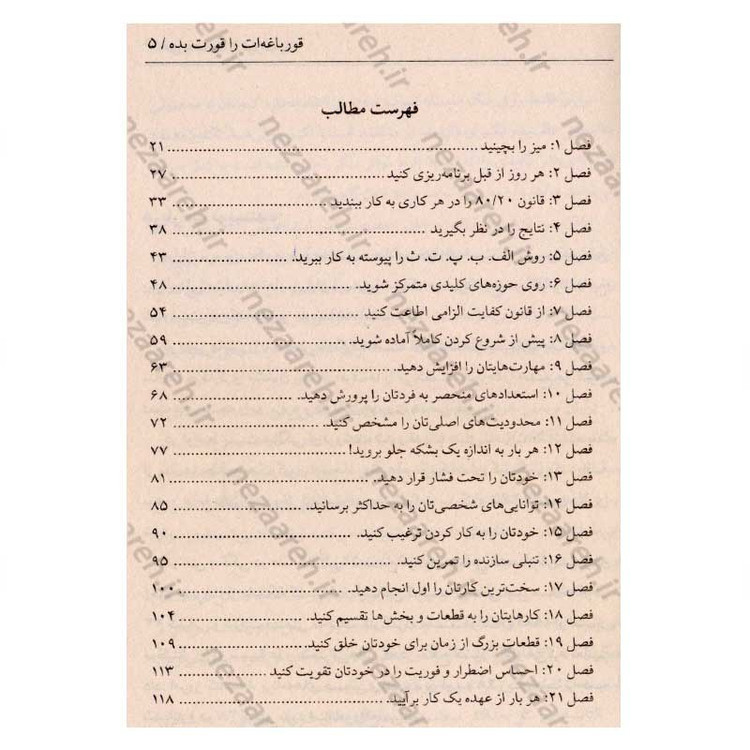 قورباغه‌ات را قورت بده / ۵
فهرست مطالب
فصل ۱: میز را بچینید ........ ۲۱
فصل ۲: هر روز از قبل برنامه‌ریزی کنید ........ ۲۷
فصل ۳: قانون ۸۰/۲۰ را در هر کاری به کار ببندید ........ ۳۳
فصل ۴: نتایج را در نظر بگیرید ........ ۳۸
فصل ۵: روش الف. ب. پ. ت. ث را پیوسته به کار ببرید! ........ ۴۳
فصل ۶: روی حوزه‌های کلیدی متمرکز شوید. ........ ۴۸
فصل ۷: از قانون کفایت الزامی اطاعت کنید ........ ۵۴
فصل ۸: پیش از شروع کردن کاملاً آماده شوید. ........ ۵۹
فصل ۹: مهارت‌هایتان را افزایش دهید. ........ ۶۳
فصل ۱۰: استعدادهای منحصر به فردتان را پرورش دهید. ........ ۶۸
فصل ۱۱: محدودیت‌های اصلی‌تان را مشخص کنید. ........ ۷۲
فصل ۱۲: هر بار به اندازه یک بشکه جلو بروید! ........ ۷۷
فصل ۱۳: خودتان را تحت فشار قرار دهید. ........ ۸۱
فصل ۱۴: توانایی‌های شخصی‌تان را به حداکثر برسانید. ........ ۸۵
فصل ۱۵: خودتان را به کار کردن ترغیب کنید. ........ ۹۰
فصل ۱۶: تنبلی سازنده را تمرین کنید. ........ ۹۵
فصل ۱۷: سخت‌ترین کارتان را اول انجام دهید. ........ ۱۰۰
فصل ۱۸: کارهایتان را به قطعات و بخش‌ها تقسیم کنید. ........ ۱۰۴
فصل ۱۹: قطعات بزرگ از زمان برای خودتان خلق کنید. ........ ۱۰۹
فصل ۲۰: احساس اضطرار و فوریت را در خودتان تقویت کنید ........ ۱۱۳
فصل ۲۱: هر بار از عهده یک کار برآیید. ........ ۱۱۸
nezaareh.ir